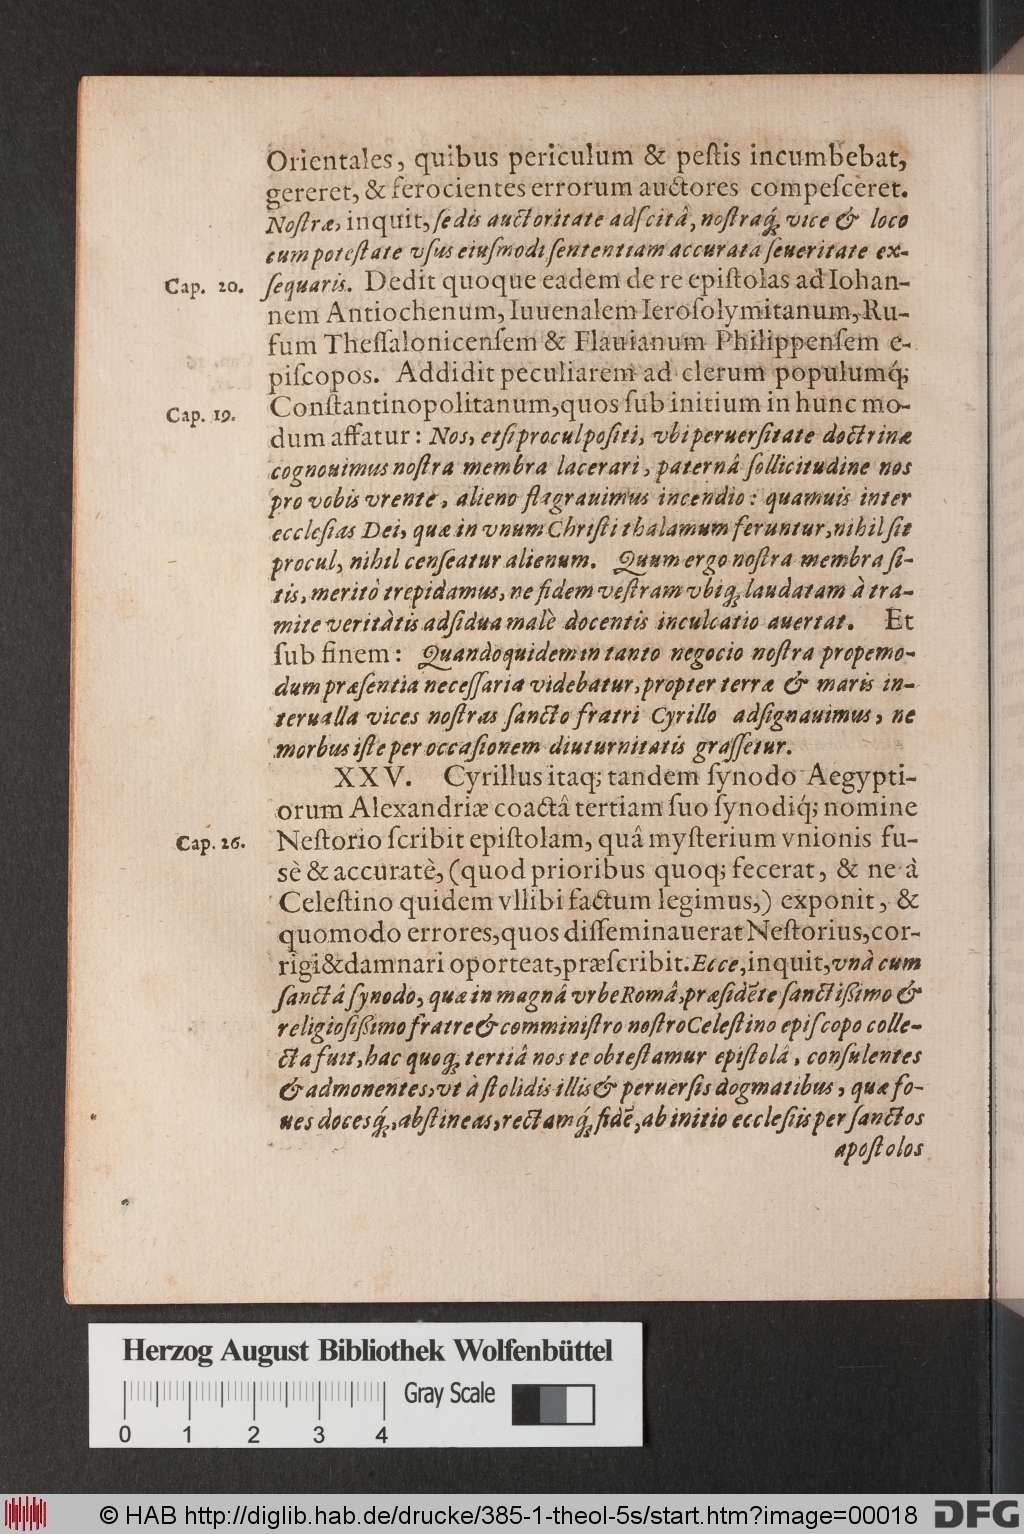 Orientales, quibus periculum & peſtis incumbebat,
gereret, & ferocientes errorum auctores compeſceret.
Noſtræ, inquit, ſedis auctoritate adſcitâ, noſtraq́; vice & loco
cum poteſtate vſus eiuſmodi ſententiam accurata ſeueritate ex-
Cap. 20. ſequaris. Dedit quoque eadem de re epiſtolas ad Iohan-
nem Antiochenum, Iuuenalem Ieroſolymitanum, Ru-
fum Theſſalonicenſem & Flauianum Philippenſem e-
piſcopos. Addidit peculiarem ad clerum populumq́;
Cap. 19. Conſtantinopolitanum, quos ſub initium in hunc mo-
dum affatur: Nos, etſi procul poſiti, vbi peruerſitate doctrinæ
cognouimus noſtra membra lacerari, paternâ ſollicitudine nos
pro vobis vrente, alieno flagrauimus incendio: quamuis inter
eccleſias Dei, quæ in vnum Chriſti thalamum feruntur, nihil ſit
procul, nihil cenſeatur alienum. Quum ergo noſtra membra ſi-
tis, meritò trepidamus, ne fidem veſtram vbiq; laudatam à tra-
mite veritàtis adſidua malè docentis inculcatio auertat. Et
ſub finem: Quandoquidem in tanto negocio noſtra propemo-
dum præſentia neceſſaria videbatur, propter terræ & maris in-
terualla vices noſtras ſancto fratri Cyrillo adſignauimus, ne
morbus iſte per occaſionem diuturnitatis graſſetur.
XXV. Cyrillus itaq; tandem ſynodo Aegypti-
orum Alexandriæ coactâ tertiam ſuo ſynodiq́; nomine
Cap. 26. Neſtorio ſcribit epiſtolam, quâ myſterium vnionis fu-
sè & accuratè, (quod prioribus quoq; fecerat, & ne à
Celeſtino quidem vllibi factum legimus,) exponit, &
quomodo errores, quos diſſeminauerat Neſtorius, cor-
rigi & damnari oporteat, præſcribit. Ecce, inquit, vnà cum
ſanctâ ſynodo, quæ in magnâ vrbe Româ, præſidẽte ſanctißimo &
religioſißimo fratre & comminiſtro noſtro Celeſtino epiſcopo colle-
cta fuit, hac quoq; tertiâ nos te obteſtamur epiſtolâ, conſulentes
& admonentes, vt à ſtolidis illis & peruerſis dogmatibus, quæ fo-
ues docesq́;, abſtineas, rectamq́; fidẽ, ab initio eccleſiis per ſanctos
apoſtolos
Herzog August Bibliothek Wolfenbüttel
Gray Scale
0 1 2 3 4
© HAB http://diglib.hab.de/drucke/385-1-theol-5s/start.htm?image=00018
DFG